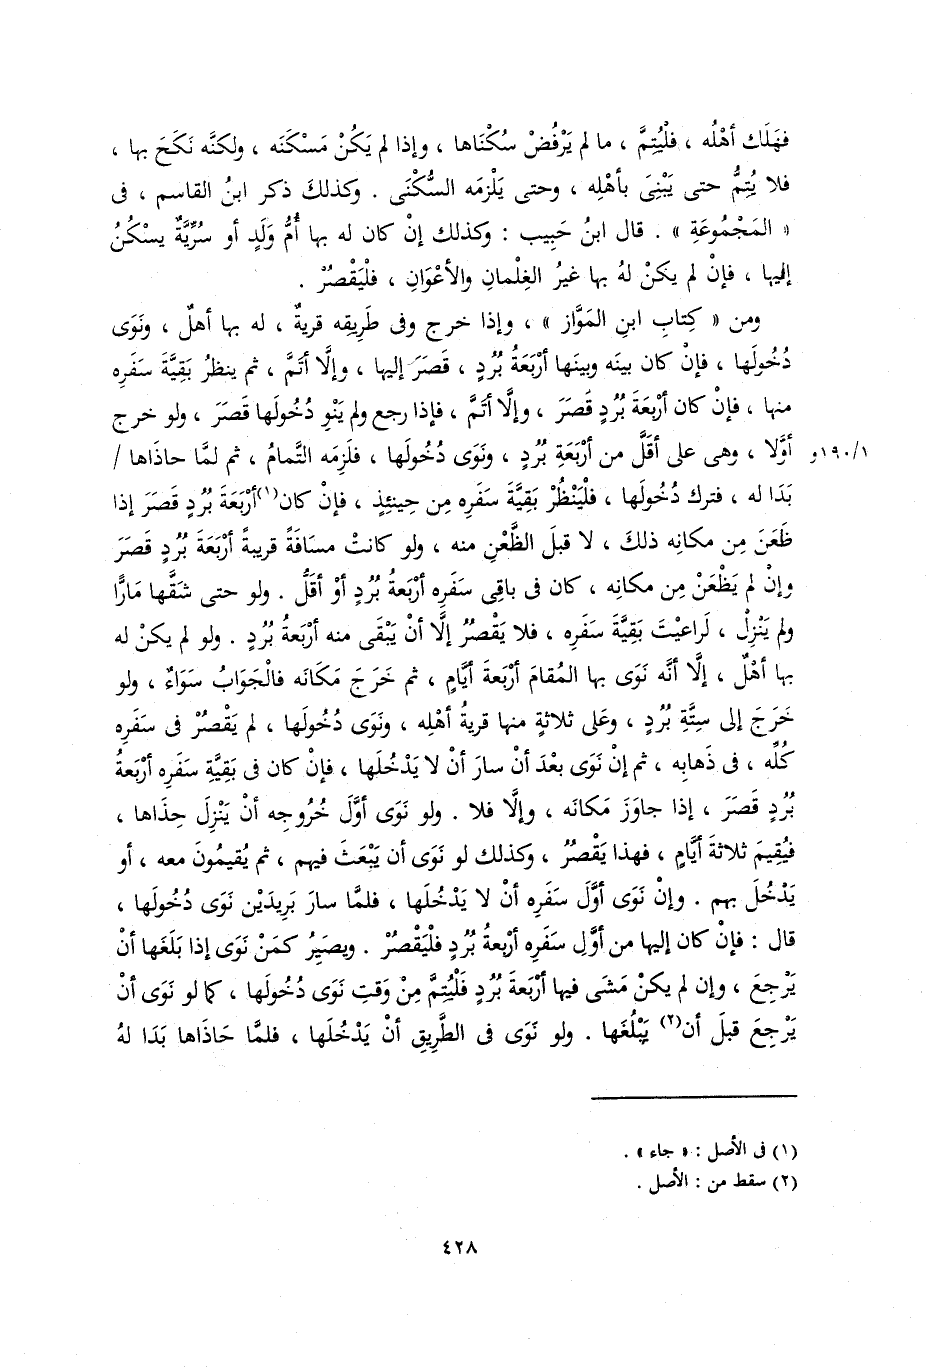 فهَلَك أهْلُه ، فلْيُتِمَّ ، ما لم يَرْفُضْ سُكْنَاها ، وإذا لم يَكُنْ مَسْكَنَه ، ولكنَّه نَكَحَ بها ،
فلا يُتِمُّ حتى يَبْنِىَ بأهْلِه ، وحتى يَلْزمَه السُّكْنَى . وكذلكَ ذكر ابنُ القاسم ، فى
« المَجْمُوعَةِ » . قال ابنُ حَبِيب : وكذلك إنْ كان له بها أُمُّ وَلَدٍ أو سُرِّيَّةٌ يسْكُنُ
إليها ، فإنْ لم يكنْ لهُ بها غيرُ الغِلْمانِ والأعْوَانِ ، فلْيَقْصُرْ .
ومن « كِتابِ ابنِ المَوَّاز » ، وإذا خرج وفى طَرِيقِه قريةٌ ، له بها أهلٌ ، ونَوَى
دُخُولَها ، فإنْ كان بينَه وبينَها أرْبَعَةُ بُرُدٍ ، قَصَرَ إليها ، وإلَّا أتَمَّ ، ثم ينظرُ بَقِيَّةَ سَفَرِه
منها ، فإنْ كان أرْبَعَةَ بُرُدٍ قَصَرَ ، وإلَّا أتَمَّ ، فإذا رجع ولم يَنْوِ دُخُولَها قَصَرَ ، ولو خرج
١٩٠/١و أوَّلا ، وهى على أقَلَّ من أرْبَعَةِ بُرُدٍ ، ونَوَى دُخُولَها ، فلَزِمَه التَّمامُ ، ثم لمَّا حاذَاها /
بَدَا له ، فترك دُخُولَها ، فلْيَنْظُرْ بَقِيَّةَ سَفَرِه مِن حِينئِذٍ ، فإنْ كان(١) أرْبَعَةَ بُرُدٍ قَصَرَ إذا
ظَعَنَ مِن مكانِه ذلكَ ، لا قبلَ الظَّعْنِ منه ، ولو كانتْ مسَافَةً قريبةً أرْبَعَةَ بُرُدٍ قَصَرَ
وإنْ لم يَظْعَنْ مِن مكانِه ، كان فى باقِى سَفَرِه أرْبَعَةُ بُرُدٍ أوْ أقَلُّ . ولو حتى شقَّها مَارًّا
ولم يَنْزِلْ ، لَراعيْتَ بَقِيَّةَ سَفَرِه ، فلا يَقْصُرُ إلَّا أنْ يَبْقَى منه أرْبَعَةُ بُرُدٍ . ولو لم يكنْ له
بها أهْلٌ ، إلَّا أنَّه نَوَى بها المُقامَ أرْبَعَةَ أيَّامٍ ، ثم خَرَجَ مَكَانَه فالْجَوَابُ سَوَاءٌ ، ولو
خَرَجَ إلى سِتَّةِ بُرُدٍ ، وعَلى ثلاثةٍ منها قريةُ أهْلِه ، ونَوَى دُخُولَها ، لم يَقْصُرْ فى سَفَرِه
كُلِّه ، فى ذَهابِه ، ثم إنْ نَوَى بعْدَ أنْ سارَ أنْ لا يَدْخُلَها ، فإن كان فى بَقِيَّةِ سَفَرِه أرْبَعةُ
بُرُدٍ قَصَرَ ، إذا جاوَزَ مَكانَه ، وإلَّا فلا . ولو نَوَى أوَّلَ خُرُوجِه أنْ يَنْزِلَ حِذَاها ،
فيُقِيمَ ثلاثةَ أيَّامٍ ، فهذا يَقْصُرُ ، وكذلك لو نَوَى أن يَبْعَثَ فيهم ، ثم يُقيمُونَ معه ، أو
يَدْخُلَ بهم . وإنْ نَوَى أوَّلَ سَفَرِه أنْ لا يَدْخُلَها ، فلمَّا سارَ بَرِيدَيْن نَوَى دُخُولَها ،
قال : فإنْ كان إليها من أوَّلِ سَفَرِه أرْبعةُ بُرُدٍ فلْيَقْصُرْ . ويصَيرُ كمَنْ نَوَى إذا بَلَغَها أنْ
يَرْجِعَ ، وإن لم يكنْ مَشَى فيها أرْبَعَةَ بُرُدٍ فَلْيُتِمَّ مِنْ وَقتِ نَوَى دُخُولَها ، كما لو نَوَى أنْ
يَرْجِعَ قبلَ أن(٢) يَبْلُغَها . ولو نَوَى فى الطَّرِيقِ أنْ يَدْخُلَها ، فلمَّا حَاذَاها بَدَا لهُ
(١) فى الأصل : « جاء » .
(٢) سقط من : الأصل .
٤٢٨